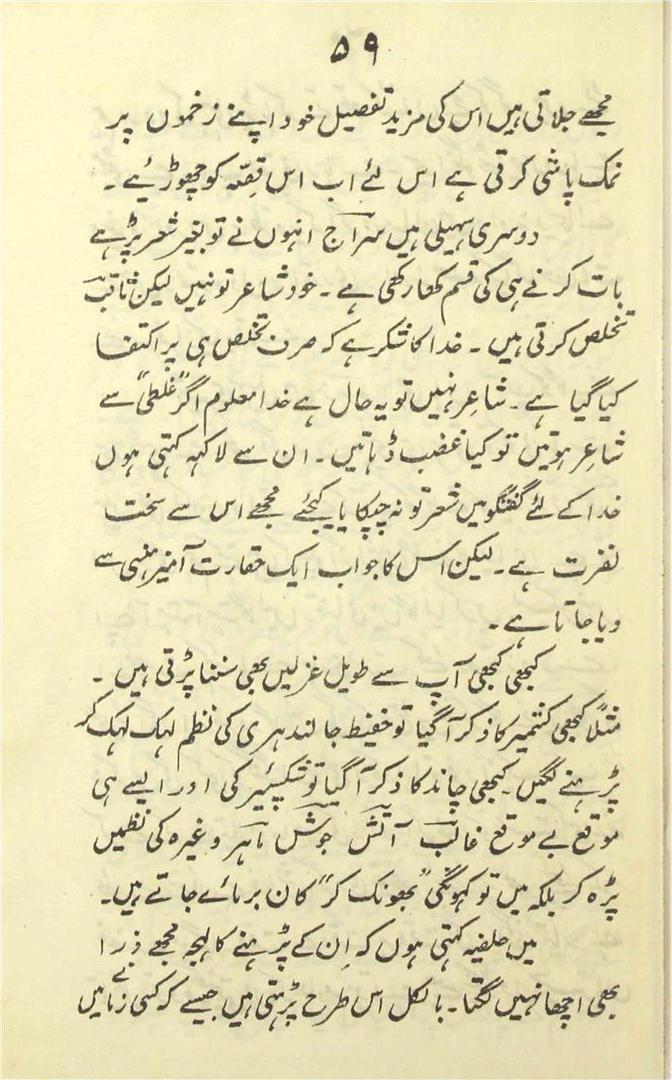 ۵۹
مجھے جلاتی ہیں اس کی مزید تفصیل خود اپنے زخموں پر
نمک پاشی کرتی ہے اس لئے اب اس قصّہ کو چھوڑئیے ۔
دوسری سہیلی ہیں سراج انہوں نے تو بغیر شعر پڑہے
بات کرنے ہی کی قسم کھا رکھی ہے ۔ خود شاعر تو نہیں لیکن ثاقب
تخلص کرتی ہیں ۔ خدا کا شکر ہے کہ صرف تخلص ہی پر اکتفا
کیا گیا ہے ۔ شاعر نہیں تو یہ حال ہے خدا معلوم اگر "غلطی" سے
شاعر ہوتیں تو کیا غضب ڈہاتیں ۔ ان سے لاکہہ کہتی ہوں
خدا کے لئے گفتگو میں شعر تو نہ چپکایا کیجئے مجھے اس سے سخت
نفرت ہے ۔ لیکن اس کا جواب ایک حقارت آمیز ہنسی سے
دیا جاتا ہے ۔
کبھی کبھی آپ سے طویل غزلیں بھی سننا پڑتی ہیں ۔
مثلاً کبھی کشمیر کا ذکر آ گیا تو حفیظ جالندہری کی نظم لہک لہک کر
پڑہنے لگیں ۔ کبھی چاند کا ذکر آ گیا تو شکسپئیر کی اور ایسے ہی
موقع بے موقع غالب آتش جوش ماہر وغیرہ کی نظمیں
پڑہ کر بلکہ میں تو کہونگی "بھونک کر" کان برمائے جاتے ہیں ۔
میں حلفیہ کہتی ہوں کہ اِن کے پڑہنے کا لہجہ مجھے ذرا
بھی اچھا نہیں لگتا ۔ بالکل اس طرح پڑہتی ہیں جیسے کہ کسی زمانے میں